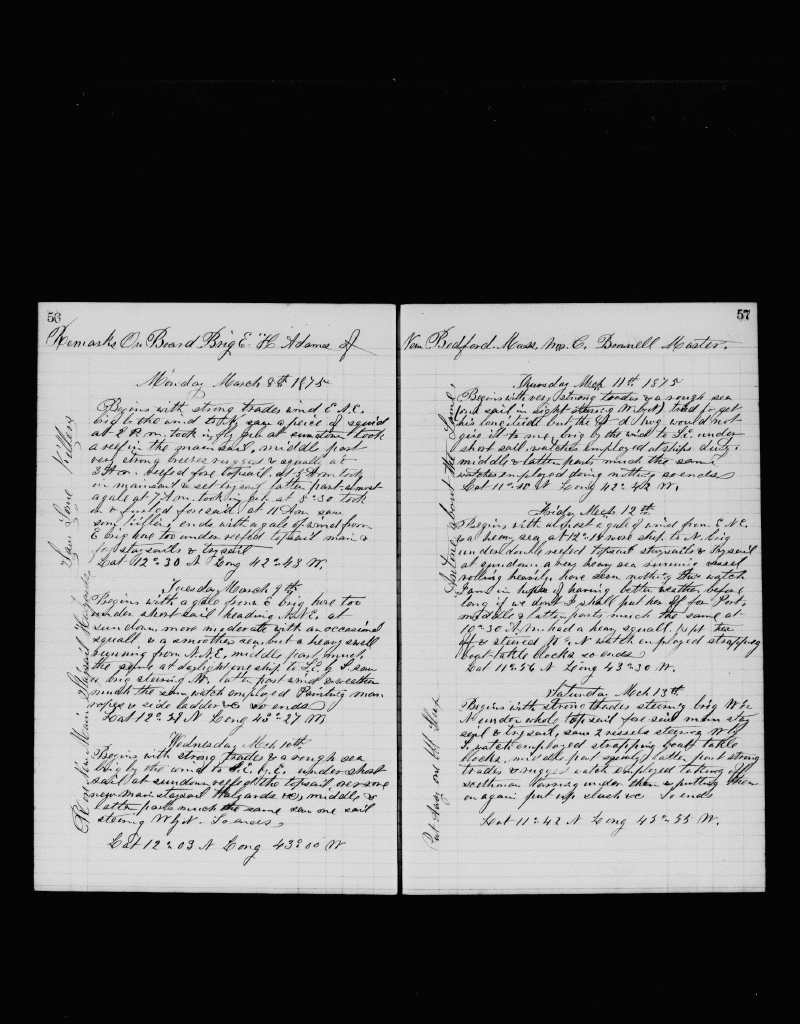 56
Remarks On Board Brig E. H. Adams of
Monday March 8th 1875
Begins with strong trades wind E.N.E.
brig to the wind saw a piece of squid
at 2 P.m. took in fly jib at sundown took
a reef in the mainsail, middle part
very strong breeze rugged & squally at
3 A.m. reefed fore topsail. at 5 A.m. took
in mainsail & set trysail latter part almost
a gale at 7 A.m. took in jib at 8=30 took
in & furled foresail at 11 A.m. saw
ends with a gale of wind from
E brig hove too under reefed topsail main &
fore staysails & trysail
Lat 12=30 N Long 42=43 W.
Tuesday March 9th
Begins with a gale from E brig hove too
under short sail heading N.N.E. at
sundown more moderate with an occasional
squall & a smoother sea, but a heavy swell
running from N.N.E, middle part much
the same at daylight one ship to L.E. & I saw
a brig steering N. latter part wind & weather
much the same watch employed Painting man
ropes & side ladder &c so ends
Lat 12=39 N Long 43=27 W.
Wednesday Mch 10th
Begins with strong trades & a rough sea
brig by the wind to S.E. by E. under short
sail at sundown reefed the topsail, rerove
new main staysail Halyards &c, middle &
latter parts much the same saw one sail
steering W by N. So ends
Lat 12=03 N Long 43=00 W
Rove New Main Staysail Halyards
Saw Some Killers
57
New Bedford. Mass, Wm. C. Brownell Master.
Thursday Mch 11th 1875
Begins with very strong trades & a rough sea
one sail in sight steering W. by N) tried to get
his longitude but the G– d– hog would not
give it to me, brig by the wind to S.E. under
short sail watches employed at ships duty.
middle & latter parts much the same
watches employed doing nothing so ends
Lat 11=48 N Long 42=42 W.
Friday Mch 12th
Begins with almost a gale of wind from E.N.E.
& a heavy sea, at 12=14 wore ship to N. brig
under double reefed topsail staysails & trysail
at sundown a very heavy sea running vessel
rolling heavily. have seen nothing this watch
I am in hopes of having better weather before
long if we dont I shall put her off for Port,
middle & latter parts much the same at
10=30 A.m. had a heavy squall. kept her
off & steered watch employed strapping
boat tackle blocks so ends
Lat 11=56 N Long 43=30 W.
Saturday Mch 13th
Begins with strong trades steering brig W by
N under whole topsail fore sail main stay
sail & trysail, saw 2 vessels steering W by
S. watch employed strapping boat tackle
blocks, middle part squally latter part strong
trades & rugged watch employed taking off
worming under them & putting them
on again put up slush &c So ends
Lat 11=42 N Long 45=55 W.
about the Same,